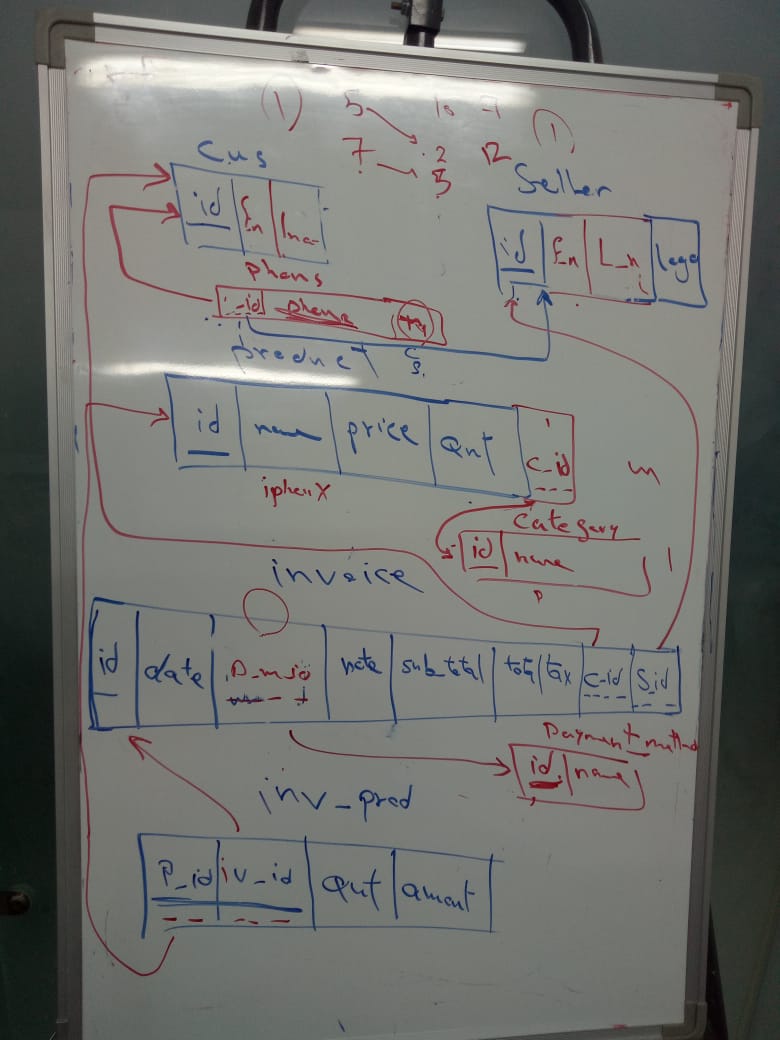 1 5 10 7 1
7 2 12
5
Cus
Seller
id f_n
id f_n L_n logo
phons
_id phone
product
id name price Qnt c_id
iphonX
m
Category
id name
1
invoice
id date note sub_total total tax c_id S_id
Payment_method
id name
inv_prod
P_id iv_id Qnt amount